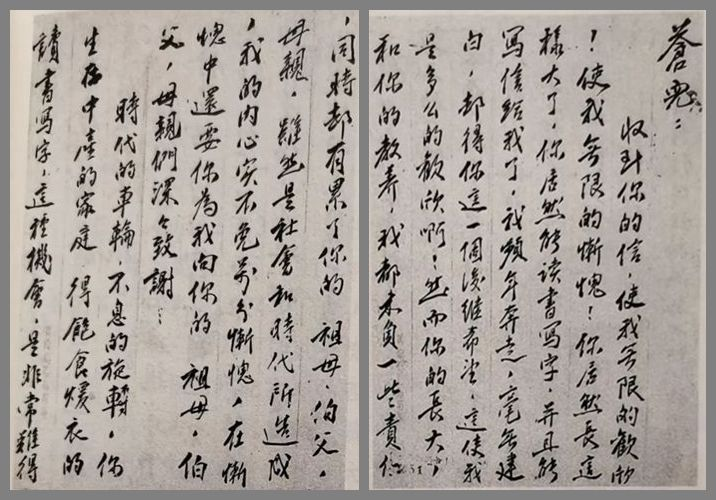 蒼兒：
收到你的信，使我无限的歡欣
！使我無限的慚愧！你居然長這
樣大了，你居然能读書写字，并且能
写信給我了，我頻年奔走，毫無建
白，却得你這一個後继希望，這使我
是多么的歡欣啊！然而你的長大，
和你的教养，我都未負一些責任
，同時却有累了你的 祖母，伯父，
母親，雖然是社會和時代所造成
，我的内心实不免萬分慚愧，在慚
愧中還要你為我向你的 祖母，伯
父，母親們深々致謝：
時代的車輪，不息的旋轉，你
生存中產的家庭 得飽食煖衣的
讀書写字，這種機會，是非常難得